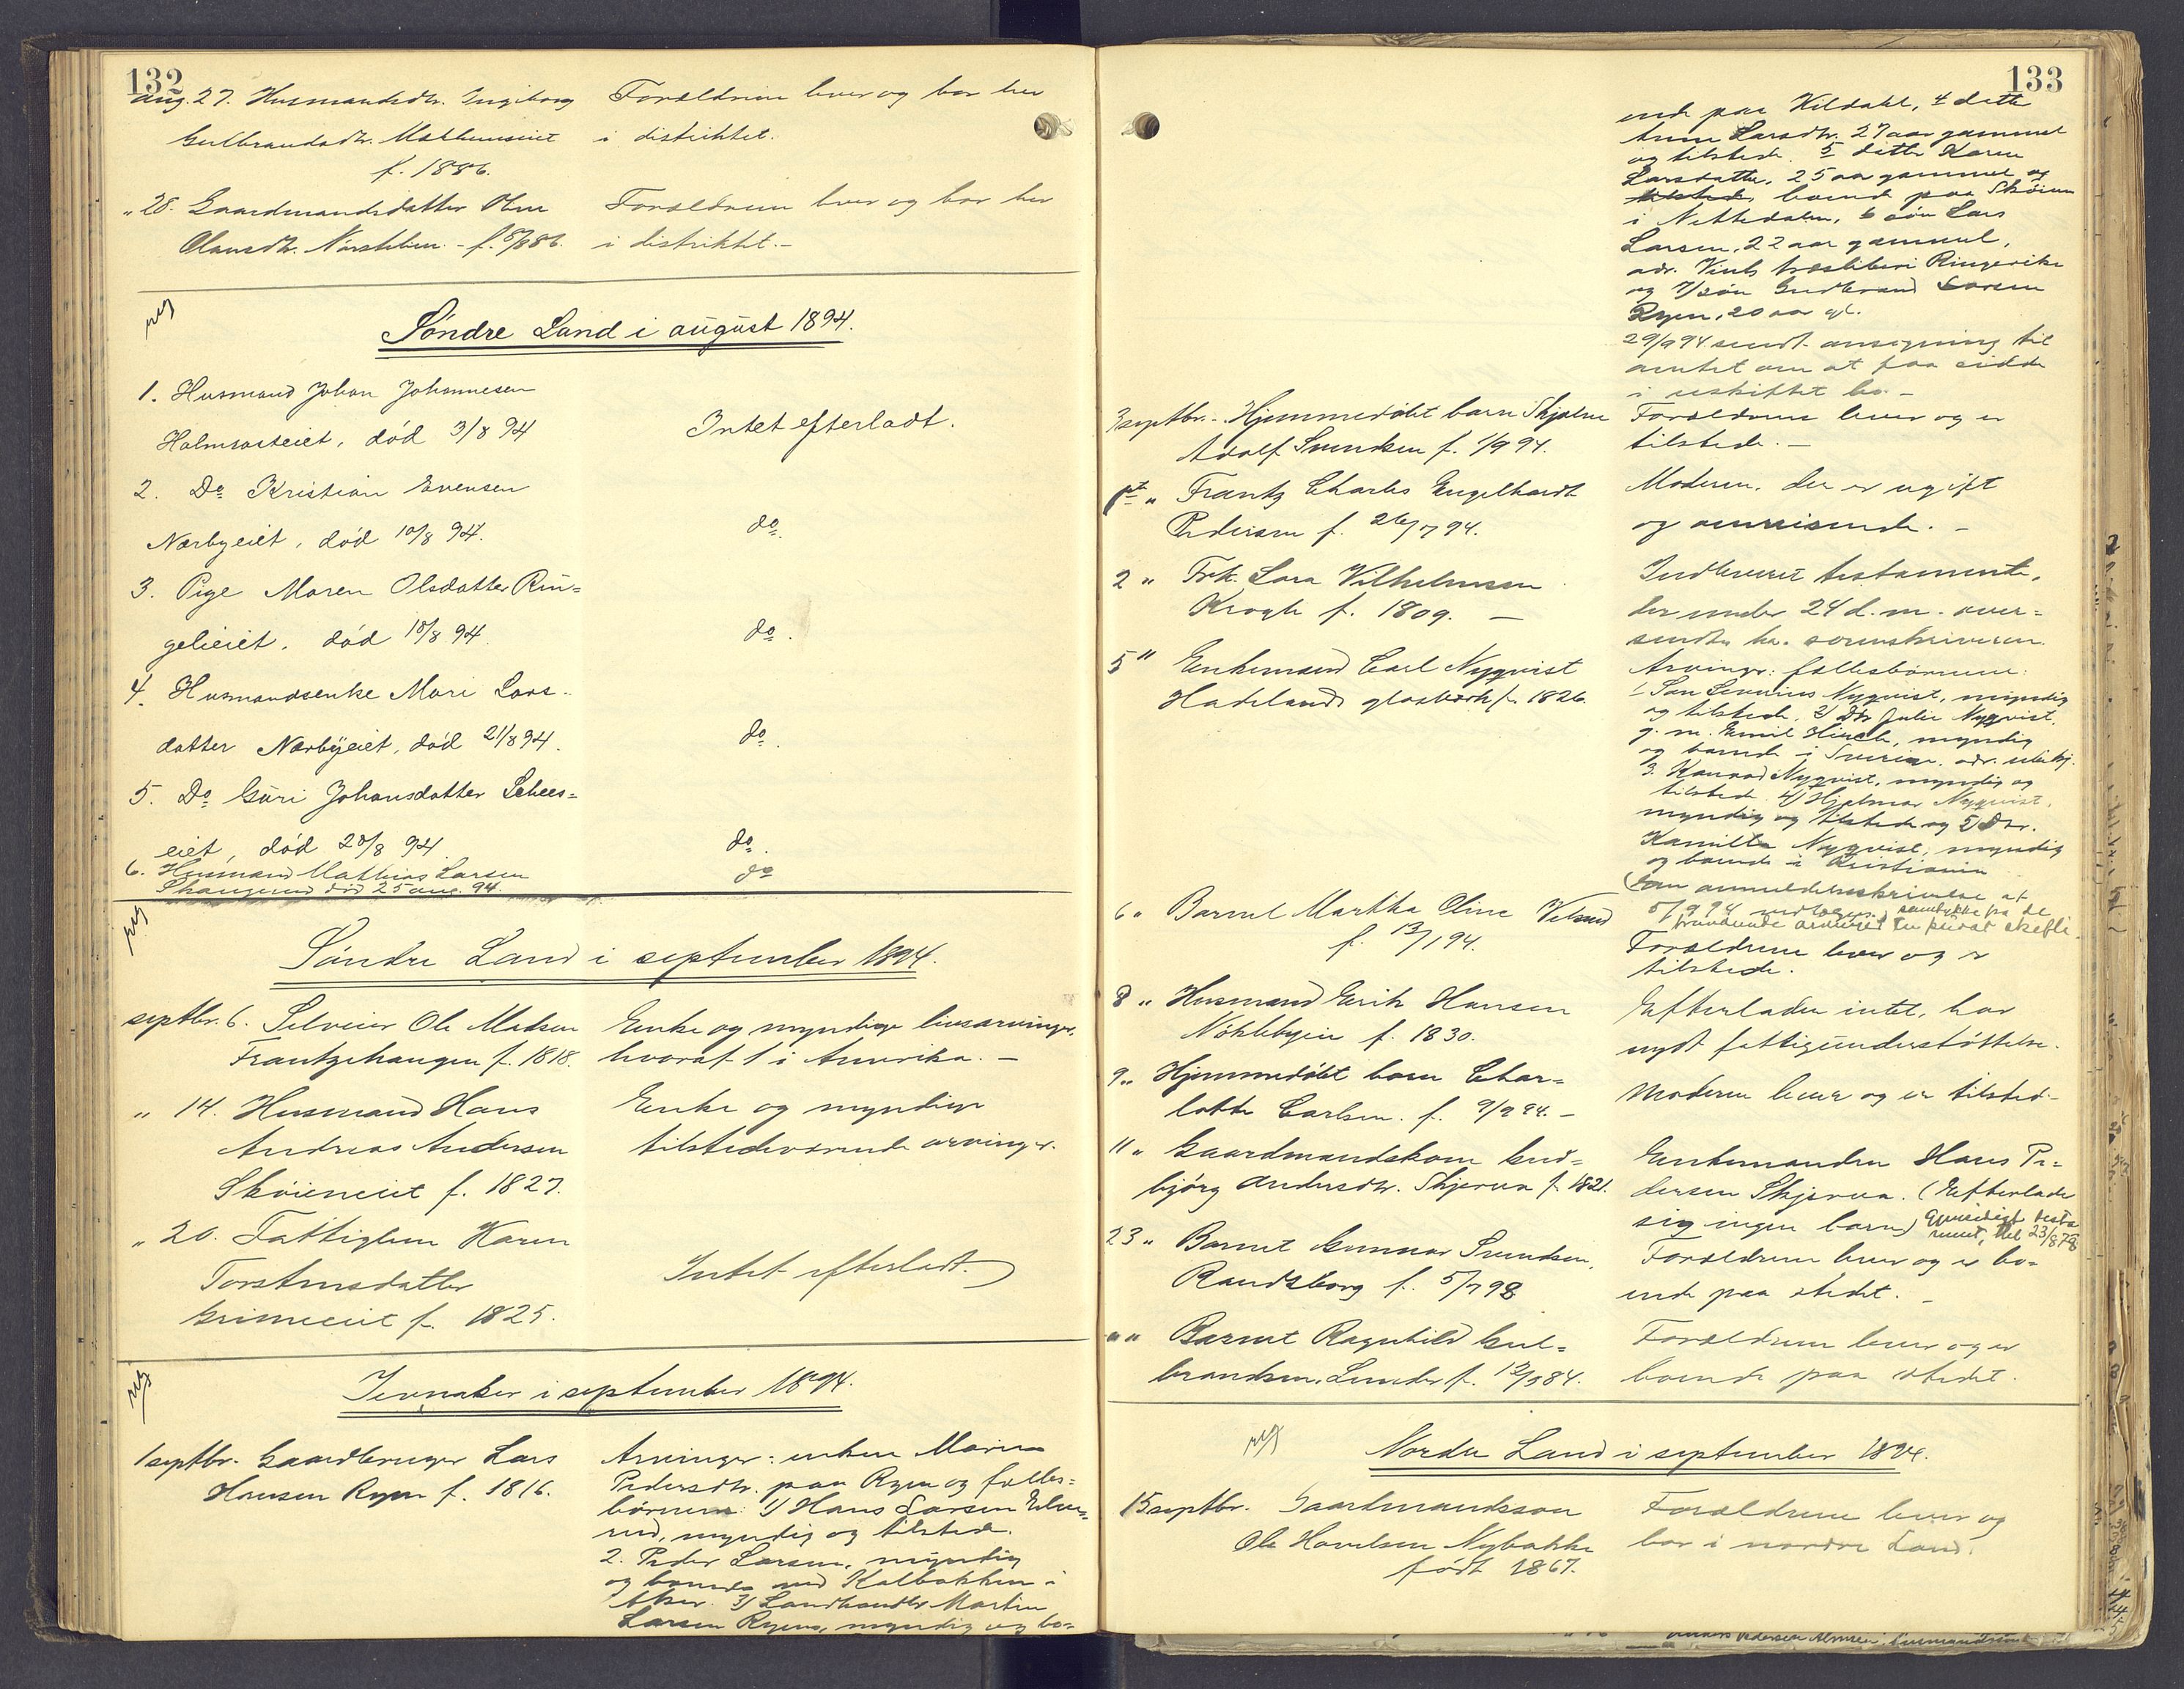 132
aug. 27. Husmandsdtr. Ingeborg
Gulbrandsdtr. Mælumseiet
f. 1886.
Forældrene lever og bor her
i distriktet.
" 28. Gaardmandsdatter Oline
Olausdtr. Nørstelien - f. 5/8 86.
Forældrene lever og bor her
i distriktet. -
reg
Søndre Land i august 1894.
1. Husmand Johan Johannesen
Holmsasteiet, död 3/8 94
Intet efterladt.
2. Do Kristian Evensen
Nærbyeiet, död 10/8 94.
do.
3. Pige Maren Olsdatter Rin=
gelieiet, död 18/8 94.
do.
4. Husmandsenke Mari Lars-
datter Nærbyeiet, död 21/8 94.
do.
5. Do Guri Johansdatter Schees=
eiet, död 28/8 94
do.
6. Husmand Mathias Larsen
Skaugerud död 25 aug. 94.
do
reg
Søndre Land i september 1894.
septbr. 6. Selveier Ole Madsen
Frantzehaugen f. 1818.
Enke og myndige livsarvinger,
hvoraf 1 i Amerika. -
" 14. Husmand Hans
Andreas Andersen
Skøieneiet f. 1827.
Enke og myndige
tilstedeværende arvinger.
" 20. Fattiglem Karen
Torstensdatter
Grimeeiet f. 1825.
Intet efterladt.
reg
Jevnaker i september 1894.
1 septbr. Gaardbruger Lars
Hansen Ryen f. 1816.
Arvinger: enken Maren
Pedersdtr. paa Ryen og fælles=
børnene: 1) Hans Larsen Elve=
rud, myndig og tilstede.
2. Peder Larsen, myndig
og boende ved Kalbakken i
Aker. 3) Landhandler Martin
Larsen Ryen, myndig og bo=
133
ende paa Kildahl, 4 datter
Anne Larsdtr. 27 aar gammel
og tilstede. 5 datter Karen
Larsdatter, 25 aar gammel og
tilstede boende paa Skøien
i Nittedalen, 6 søn Lars
Larsen, 22 aar gammel,
adr. Viuls træsliberi Ringerike
og 7/ søn Gudbrand Larsen
Ryen, 20 aar gl.
29/9 94 sendt ansøgning til
amtet om at faa sidde
i uskiftet bo. -
3 septbr. - Hjemmedøbt barn Thjalve
Adolf Svendsen f. 1/9 94.
Forældrene lever og er
tilstede. -
" Frantz Charles Engelhardt
Pedersen f. 26/7 94.
Moderen, der er ugift
og omreisende. -
2 " Frk. Lara Vilhelmsen
Krogh f. 1809. -
Indleveret testamente,
der under 24 d. m. over=
sendtes hr. sorenskriveren.
5 " Enkemand Carl Nyqvist
Hadelands glasværk f. 1826.
Arvinger: fællesbørnene:
1 Søn Severius Nyqvist, myndig
og tilstede, 2) Dtr Julie Nyqvist,
g. m. Emil Hirsch, myndig
og boende i Sverige, adr. ubekj.
3. Konrad Nyqvist, myndig og
tilstede 4) Hjalmar Nyqvist,
myndig og tilstede og 5 Dtr.
Kamilla Nyqvist, myndig
og boende i Kristiania
(Som anmeldelsesskrivelse af
5/9 94 medtages samtykke fra de
fraværende arvinger til privat skifte.
6 " Barnet Martha Oline Velsund
f. 13/1 94.
Forældrene lever og er
tilstede.
8 " Husmand Erik Hansen
Nøklebyeie f. 1830.
Efterlader intet, har
nydt fattigunderstøttelse.
9 " Hjemmedøbt barn Char=
lotte Carlsen. f. 9/9 94. -
Moderen lever og er tilsted.
11 " Gaardmandskone Gud=
bjørg Andersdtr. Skjerva f. 1821.
Enkemanden Hans Pe=
dersen Skjerva. (Efterlader
sig ingen børn) Gjensidigt testa
ment, thl 23/8 78
23 " Barnet Gunnar Svendsen,
Randsborg f. 5/7 93
Forældrene lever og er bo=
ende paa stedet. -
" " Barnet Ragnhild Gul=
brandsen, Lunder f. 12/5 84.
Forældrene lever og er
boende paa stedet.
reg
Nordre Land i september 1894.
15 septbr. Gaardmandssøn
Ole Havelsen Nybakke
født 1867.
Forældrene lever og
bor i nordre Land.